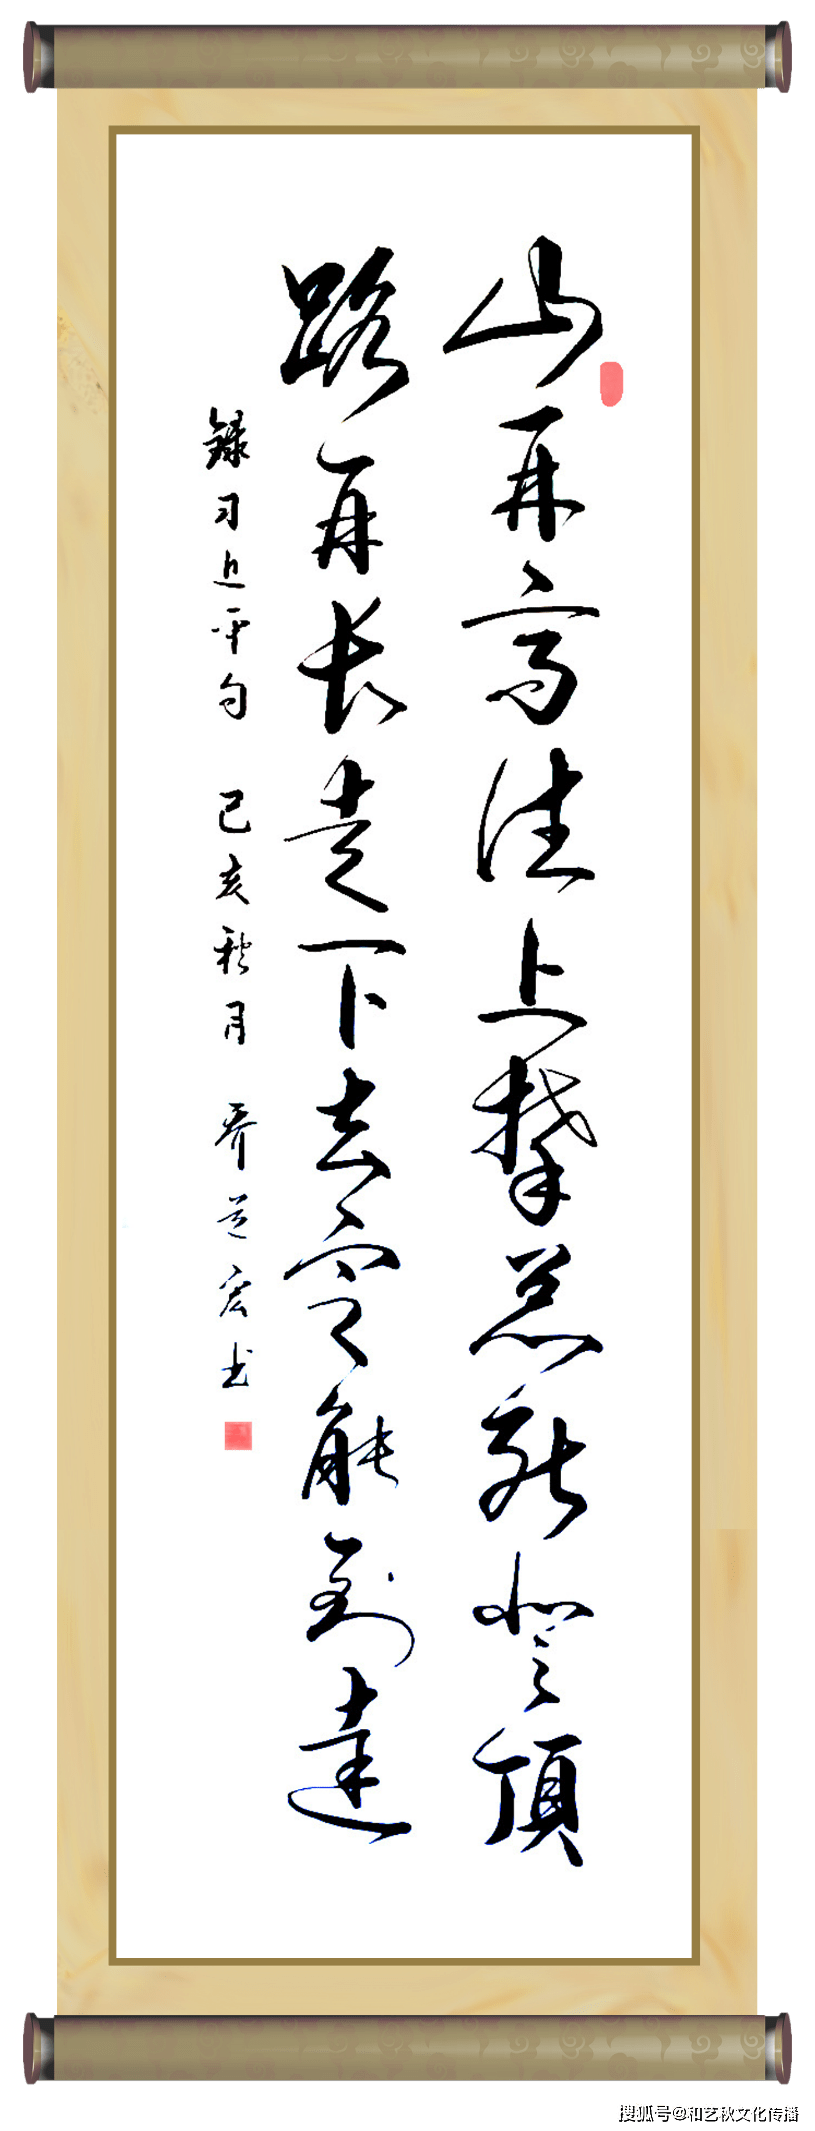 山再高往上攀总能登顶
路再长走下去定能到达
录习近平句 己亥秋月 乔芝宏书
搜狐号@和艺秋文化传播